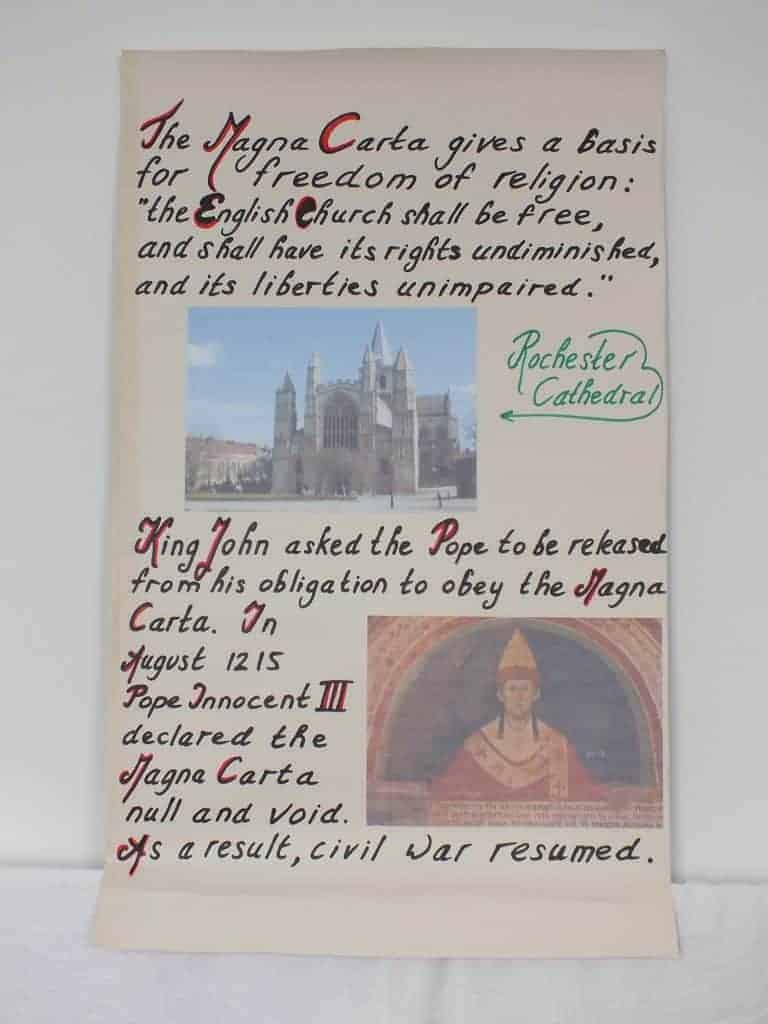 The Magna Carta gives a basis
for freedom of religion:
"the English Church shall be free,
and shall have its rights undiminished,
and its liberties unimpaired."
Rochester
Cathedral
King John asked the Pope to be released
from his obligation to obey the Magna
Carta. In
August 1215
Pope Innocent III
declared the
Magna Carta
null and void.
As a result, civil war resumed.